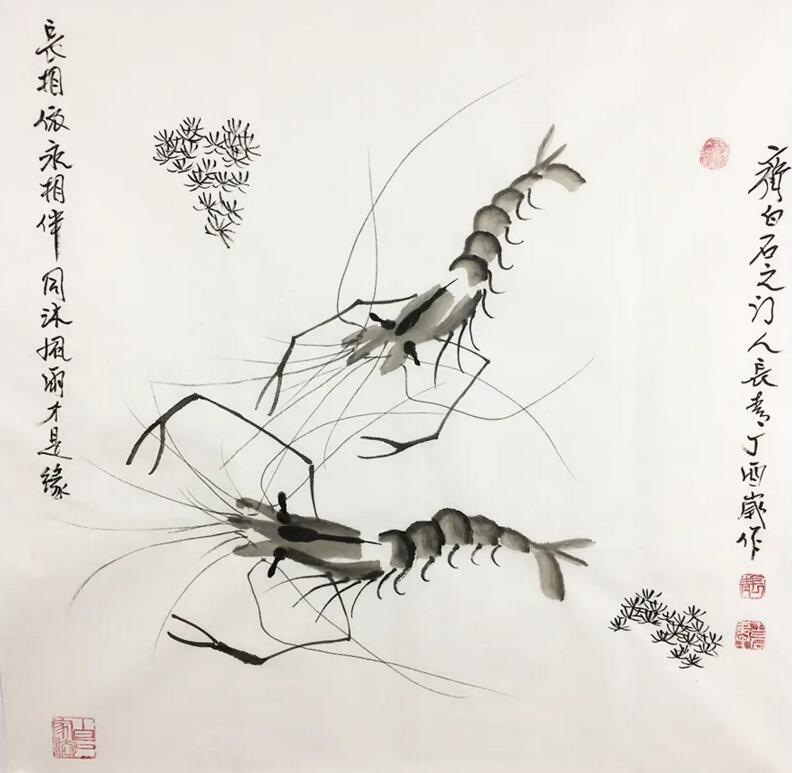 齊白石之门人長青丁酉歲作
長相依永相伴同沐風雨才是緣